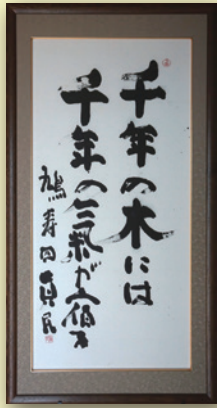 千年の木には
千年の氣が宿る
鳩寿四貞民